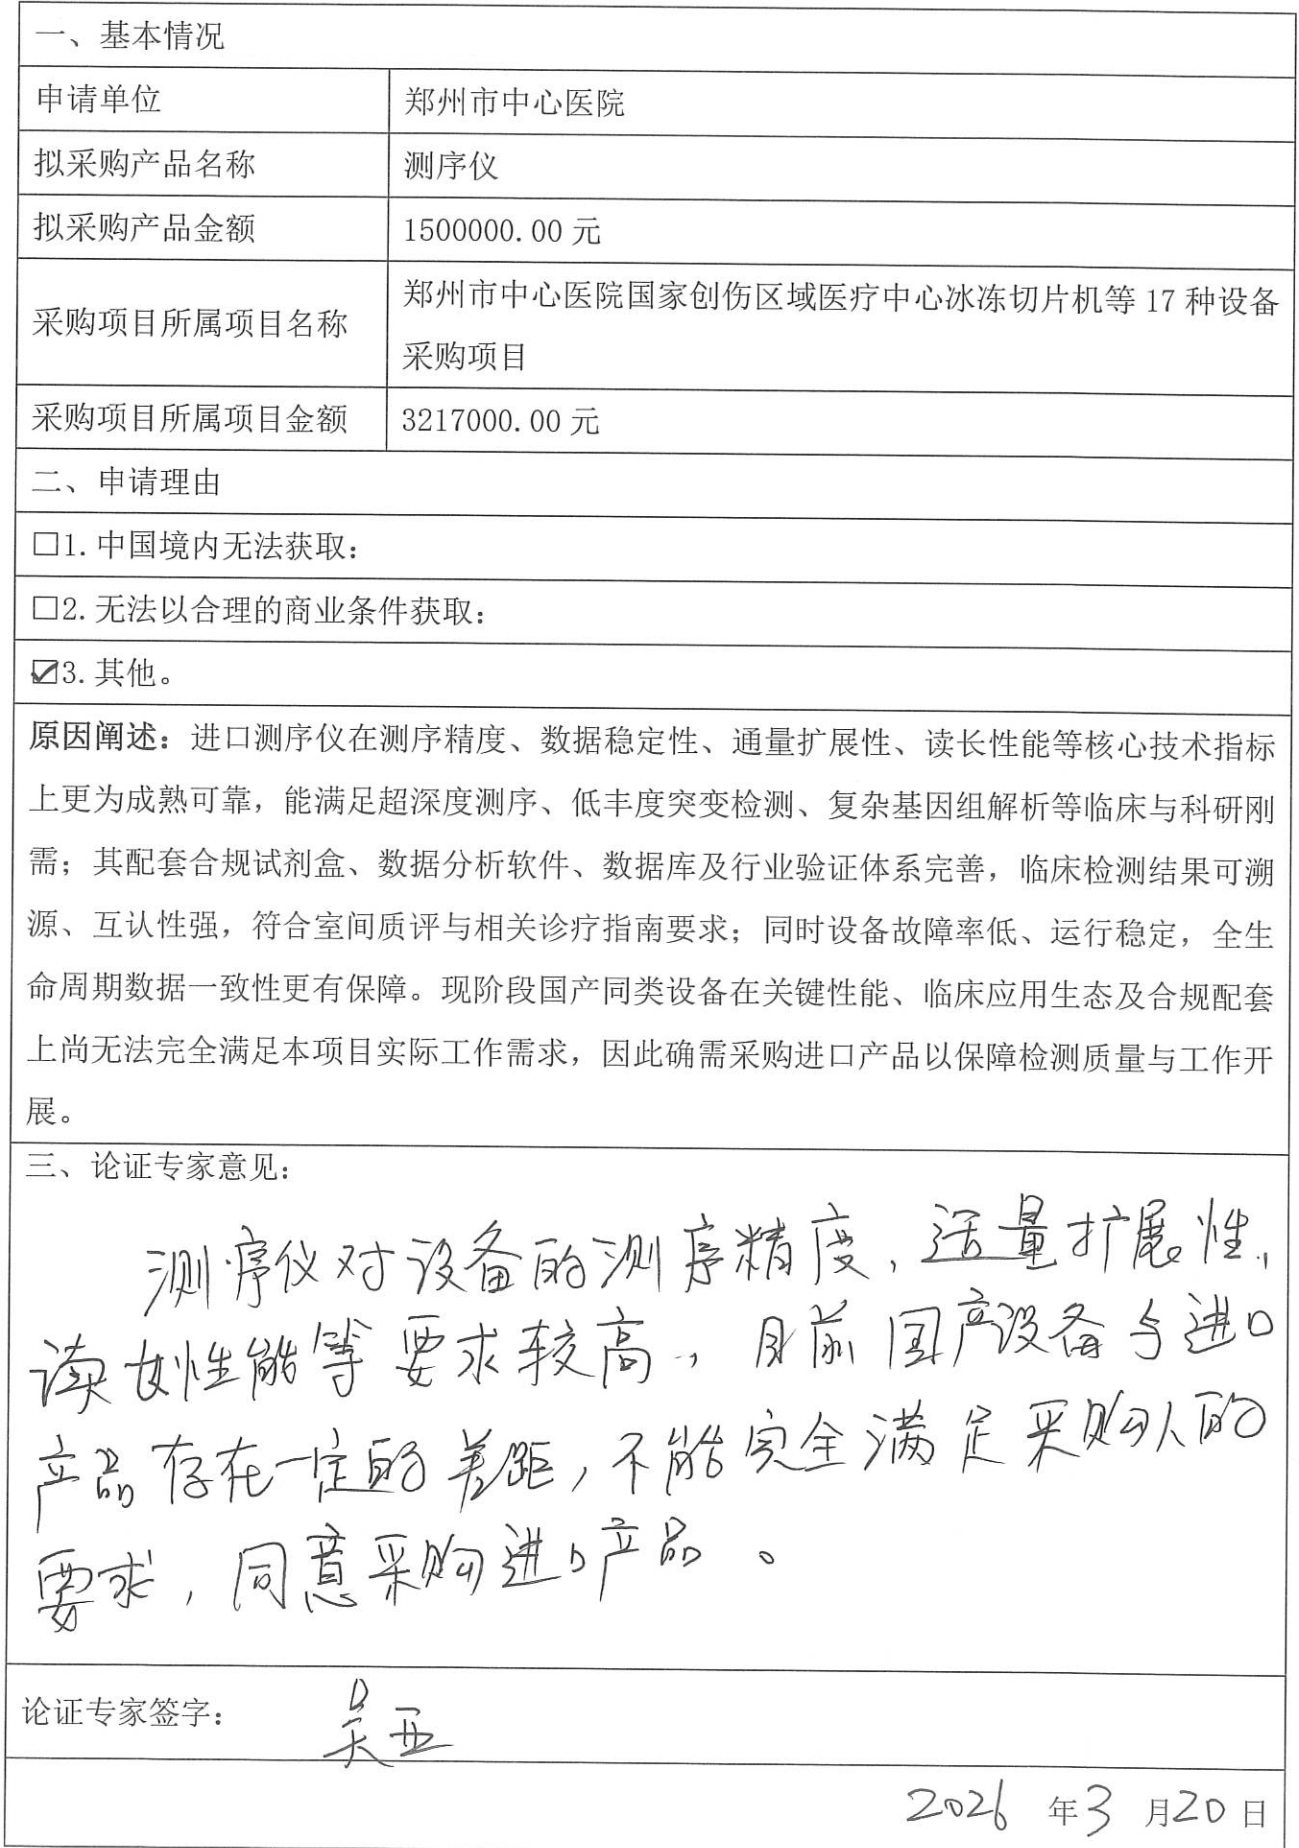 一、基本情况
申请单位 郑州市中心医院
拟采购产品名称 测序仪
拟采购产品金额 1500000.00 元
采购项目所属项目名称 郑州市中心医院国家创伤区域医疗中心冰冻切片机等 17 种设备
采购项目
采购项目所属项目金额 3217000.00 元
二、申请理由
☐1. 中国境内无法获取：
☐2. 无法以合理的商业条件获取：
☑3. 其他。
原因阐述：进口测序仪在测序精度、数据稳定性、通量扩展性、读长性能等核心技术指标
上更为成熟可靠，能满足超深度测序、低丰度突变检测、复杂基因组解析等临床与科研刚
需；其配套合规试剂盒、数据分析软件、数据库及行业验证体系完善，临床检测结果可溯
源、互认性强，符合室间质评与相关诊疗指南要求；同时设备故障率低、运行稳定，全生
命周期数据一致性更有保障。现阶段国产同类设备在关键性能、临床应用生态及合规配套
上尚无法完全满足本项目实际工作需求，因此确需采购进口产品以保障检测质量与工作开
展。
三、论证专家意见：
测序仪对设备的测序精度、通量扩展性、
读 性能等要求较高，目前国产设备与进口
产品存在一定的差距，不能完全满足采购人的
要求，同意采购进口产品。
论证专家签字： 吴亚
2026 年 3 月 20 日